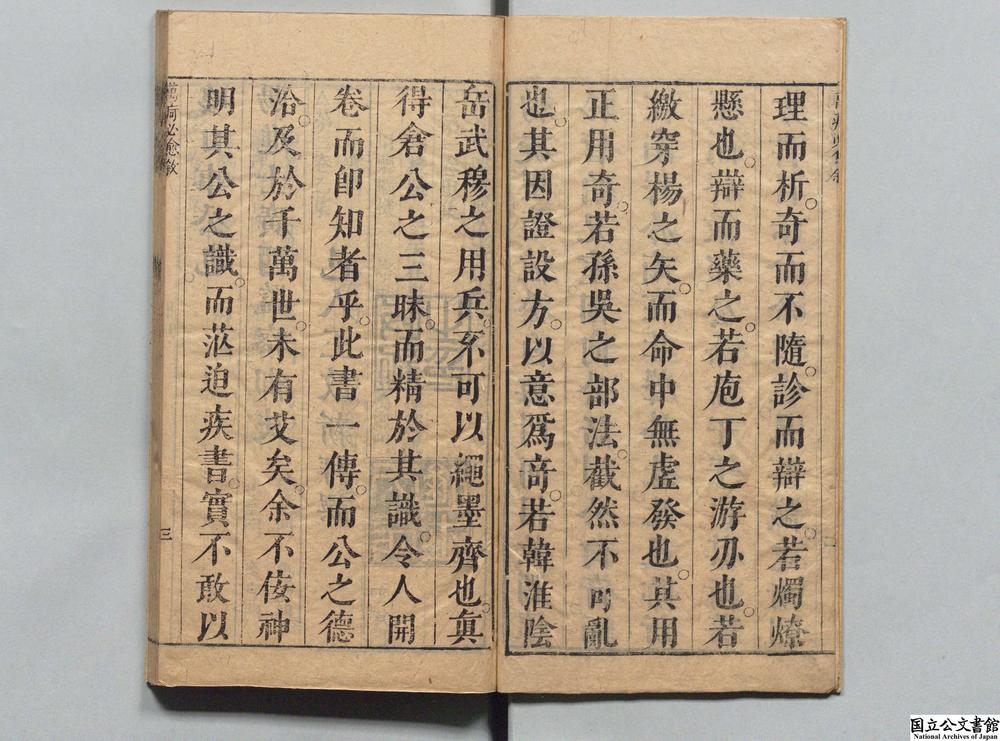 理而析奇而不隨。診而辯之。若燭燎
懸也。辯而藥之。若庖丁之游刃也。若
繳穿楊之矢。而命中無虛發也。其用
正用奇。若孫吳之部法。截然不可亂
也。其因證設方。以意爲竒。若韓淮陰
岳武穆之用兵。不可以繩墨齊也。眞
得倉公之三昧。而精於其識。令人開
卷而卽知者乎。此書一傳。而公之德
洽及於千萬世。未有艾矣。余不佞神
明其公之識。而茫迫疾書。實不敢以
萬痾必愈敘
三
国立公文書館
National Archives of Japan